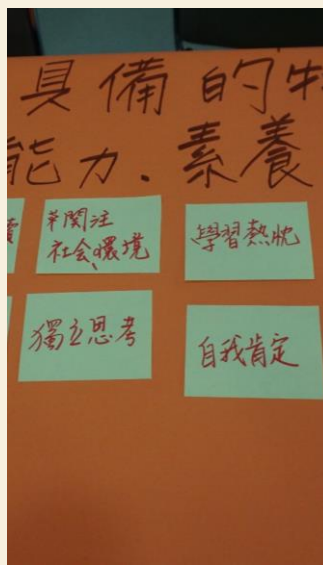 具備的特
能力.素養
關注
社會、環境
學習熱忱
獨立思考
自我肯定